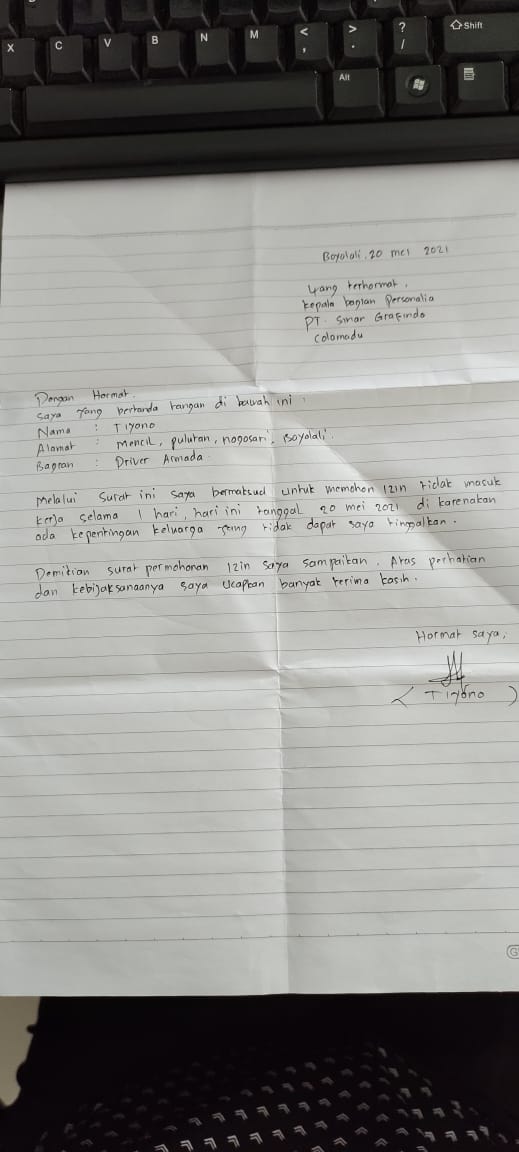 X C V B N M < , > . ? / Shift
Alt
Boyolali, 20 mei 2021
Yang terhormat,
Kepala bagian Personalia
PT. Sinar Grafindo
Colomadu
Dengan Hormat.
Saya yang bertanda tangan di bawah ini :
Nama : Tiyono
Alamat : Mencil, pulutan, nogosari, Boyolali.
Bagian : Driver Armada
Melalui surat ini saya bermaksud untuk memohon izin tidak masuk
kerja selama 1 hari, hari ini tanggal 20 mei 2021 di karenakan
ada kepentingan keluarga yang tidak dapat saya tinggalkan.
Demikian surat permohonan izin saya sampaikan. Atas perhatian
dan kebijaksanaanya saya ucapkan banyak terima kasih.
Hormat saya,
( Tiyono )
G